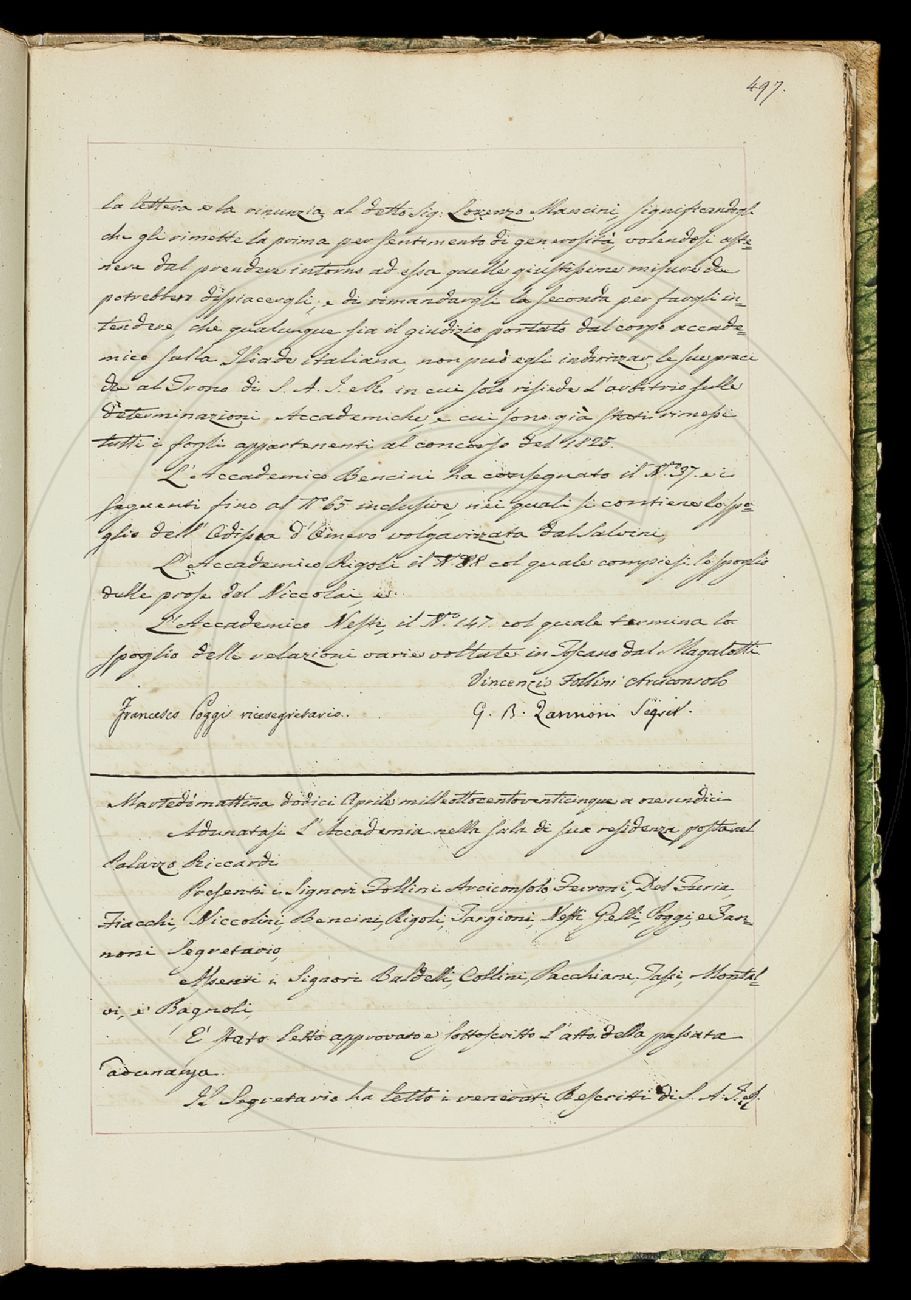 497.
la lettera e la rinunzia al detto Sig: Lorenzo Mancini, significandogli
che gli rimette la prima per sentimento di generosità, volendosi aste=
nere dal prendere intorno ad essa quelle giustissime misure che
potrebbero dispiacergli, e di rimandargli la seconda per fargli in=
tendere, che qualunque sia il giudizio portato dal corpo accade=
mico sulla Iliade italiana, non può egli indirizzar le sue preci
che al Trono di S. A. I. e R. in cui solo risiede l'arbitrio sulle
determinazioni Accademiche, e cui sono già stati rimessi
tutti i fogli appartenenti al concorso del 1825.
L'Accademico Bencini ha consegnato il N.º 37. e i
seguenti fino al N.º 65 inclusive, nei quali si contiene lo spo=
glio dell'Odissea d'Omero volgarizzata dal Salvini,
L'Accademico Rigoli il N.º 88 col quale compiesi lo spoglio
delle prose dal Niccolai, e
L'Accademico Nesti, il N.º 147. col quale termina lo
spoglio delle relazioni varie voltate in Toscano dal Magalotti
Vincenzio Follini Arciconsolo
Francesco Poggi vicesegretario. G. B. Zannoni Segret.
Martedì mattina dodici Aprile milleottocentoventicinque a ore undici
Adunatasi l'Accademia nella sala di sua residenza posta nel
Palazzo Riccardi
Presenti i Signori Follini Arciconsolo Ferroni Del Furia
Fiacchi, Niccolini, Bencini, Rigoli, Targioni, Nesti Gelli, Poggi, e Zan=
noni Segretario,
Assenti i Signori Baldelli, Collini, Pacchiani, Tassi, Montal=
vi, e Bagnoli,
E' stato letto approvato e sottoscritto l'atto della passata
adunanza.
Il Segretario ha letto i venerati Rescritti di S. A. I. R.